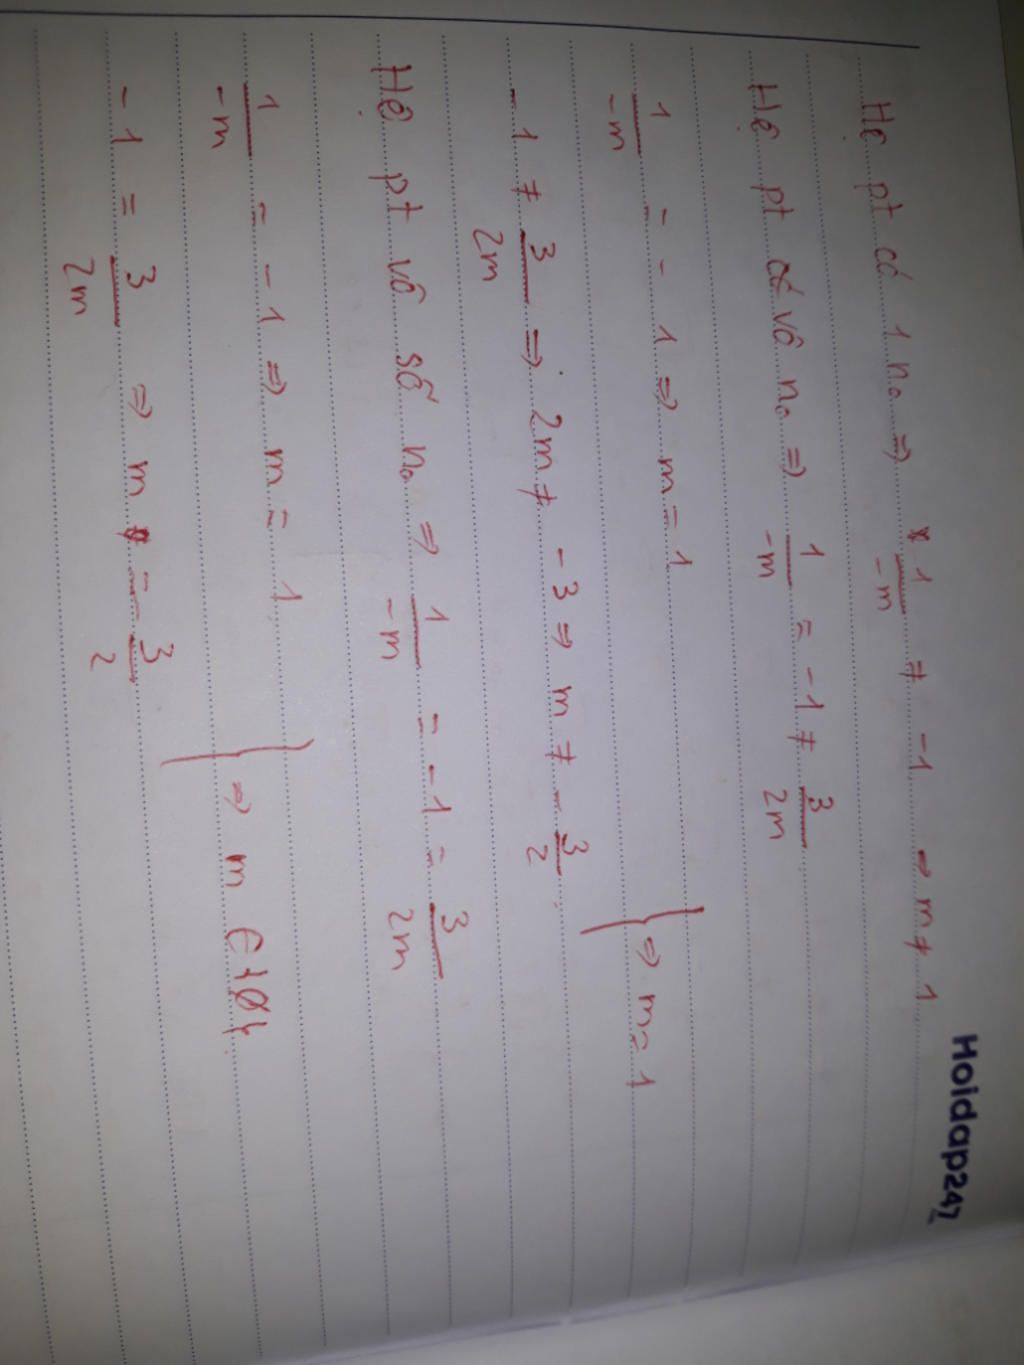 Hoidap247
Hệ pt có 1 n₀ => 1/-m ≠ -1 => m ≠ 1
Hệ pt có vô n₀ => 1/-m = -1 ≠ 3/2m
1/-m = -1 => m = 1
-1 ≠ 3/2m => 2m ≠ -3 => m ≠ -3/2 } => m = 1
Hệ pt vô số n₀ => 1/-m = -1 = 3/2m
1/-m = -1 => m = 1
-1 = 3/2m => m = -3/2 } => m ∈ {∅}